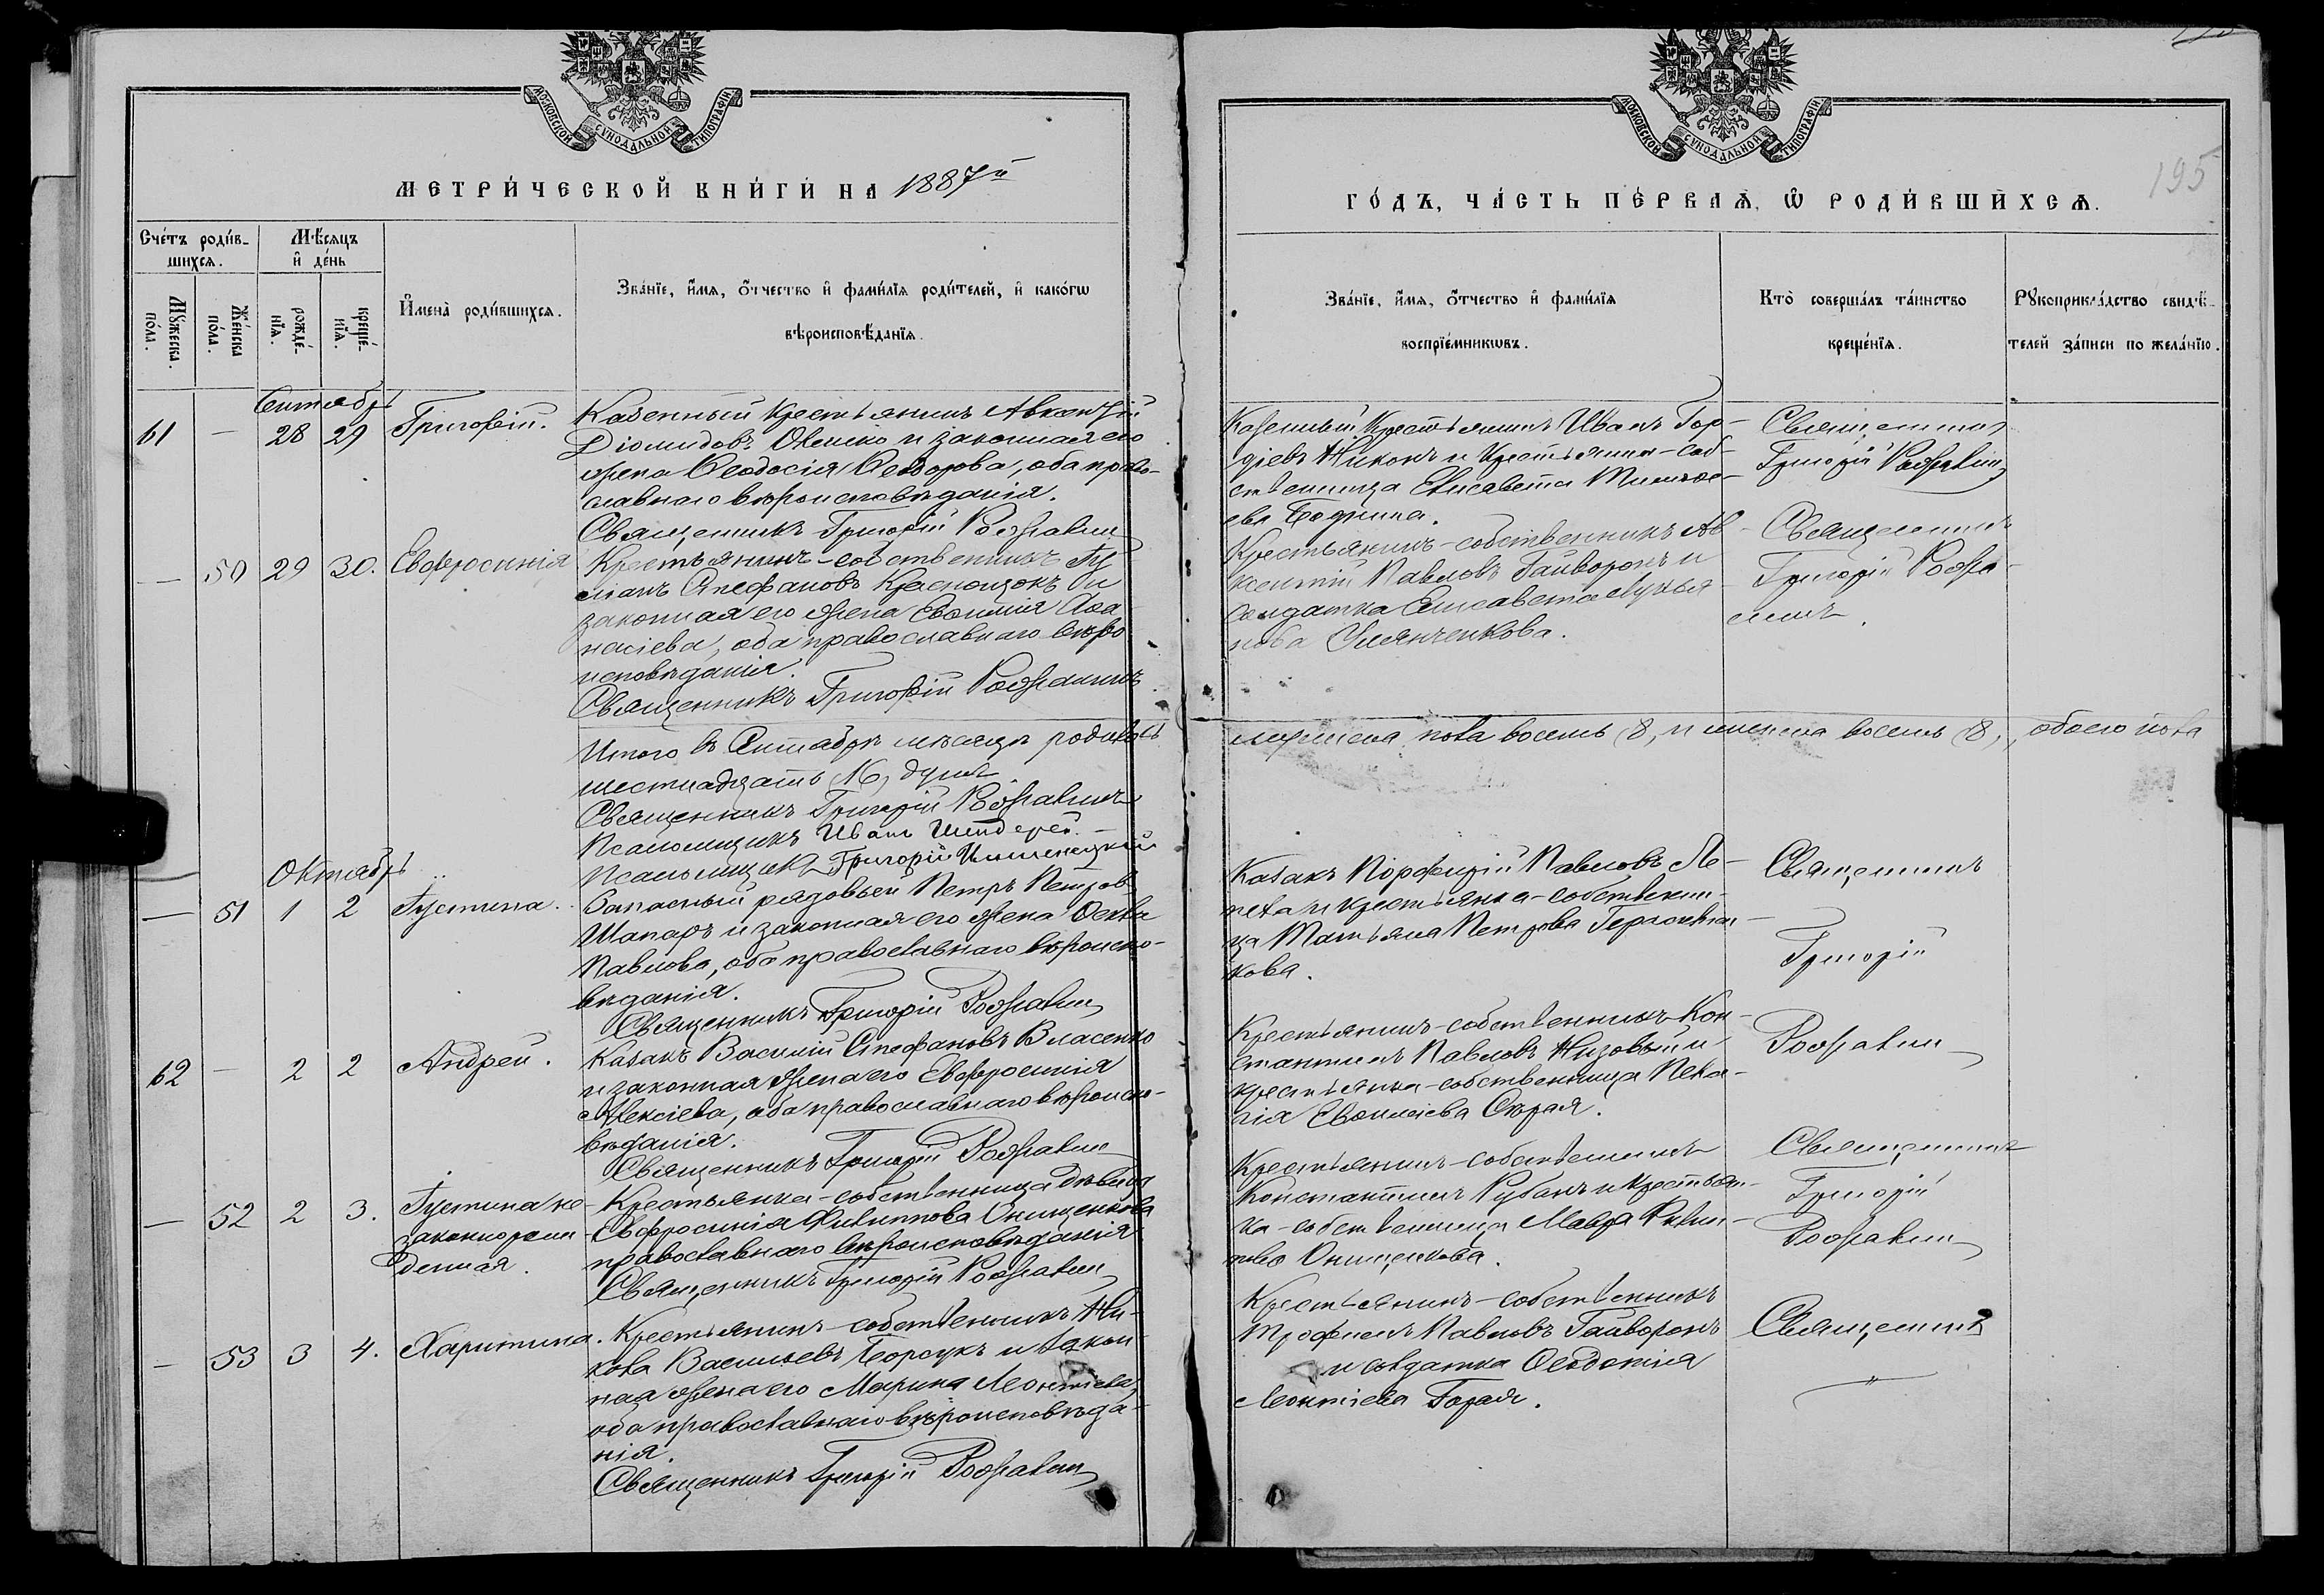 МОСКОВСКОЙ СѴНОДАЛЬНОЙ ТИПОГРАФІИ
МЕТРИ́ЧЕСКОЙ КНИ́ГИ НА 1887й
Сче́тъ роди́в-
шихсѧ.
Мѣ́сѧцъ
и҆ де́нь
Мꙋ́жеска по́ла.
Же́нска по́ла.
рожде́-
нїѧ.
креще́-
нїѧ.
И҆мена̀ роди́вшихсѧ.
Зва́нїе, и҆́мѧ, ѻ҆́тчество и҆ фами́лїѧ роди́телей, и҆ како́гѡ
вѣроисповѣ́данїѧ.
Сентябрь
61 — 28 29 Григорій.
Казенный крестьянинъ Авксентій
Діомидовъ Овенко и законная его
жена Ѳеодосія Ѳеодорова, оба право-
славнаго вѣроисповѣданія.
Священникъ Григорій
— 50 29 30. Евфросинія
Крестьянинъ-собственникъ
Стефановъ Краснощокъ и
законная его жена Евфимія Аѳа-
насіева, оба православнаго вѣро
исповѣданія.
Священникъ Григорій
Итого въ Сентябрѣ мѣсяцѣ родилось
шестнадцать 16, душъ
Священникъ Григорій
Псаломщикъ Иванъ
Псаломщикъ Григорій
Октябрь
— 51 1 2 Іустина.
Запасный рядовой Петръ Петровъ
Шапаръ и законная его жена Ѳекла
Павлова, оба православнаго вѣроиспо-
вѣданія.
Священникъ Григорій
62 — 2 2 Андрей.
Казакъ Василій Стефановъ Власенко
и законная жена его Евфросинія
Алексіева, оба православнаго вѣроиспо-
вѣданія.
Священникъ Григорій
— 52 2 3. Іустина не
законнорож
денная.
Крестьянка-собственница дѣвица
Евфросинія Филиппова Онищенкова
православнаго вѣроисповѣданія
Священникъ Григорій
— 53 3 4. Харитина.
Крестьянинъ-собственникъ Ни-
кола Васильевъ Борсукъ и закон-
ная жена его Марина Леонтіева,
оба православнаго вѣроисповѣда-
нія.
Священникъ Григорій
МОСКОВСКОЙ СѴНОДАЛЬНОЙ ТИПОГРАФІИ
195
ГО́ДЪ, ЧА́СТЬ ПЕ́РВАѦ, Ѡ҆ РОДИ́ВШИХСѦ.
Зва́нїе, и҆́мѧ, ѻ҆́тчество и҆ фами́лїѧ
воспрїе́мникѡвъ.
Кто̀ соверша́лъ та́инство
креще́нїѧ.
Рꙋкоприкла́дство свидѣ́-
телей за́писи по жела́нїю.
Казенный Крестьянинъ Иванъ Гор-
діевъ Никонъ и Крестьянка-соб-
ственница Елисавета
Священникъ
Григорій
Крестьянинъ-собственникъ Ав-
ксентій Павловъ Гайворонъ и
Солдатка Елисавета Лукья
нова
Священникъ
Григорій
мужеска пола восемь 8, и женска восемь 8, обоего пола
Казакъ Порфирій Павловъ Ле-
пеха и крестьянка-собственни-
ца Татьяна Петрова
кова.
Священникъ
Григорій
Крестьянинъ-собственникъ Кон-
стантинъ Павловъ Низовый и
крестьянка-собственница Пела-
гія Евфиміева Сѣрая.
Крестьянинъ-собственникъ
Константинъ Рубанъ и крестьян-
ка-собственница Мавра Филип-
пова Онищенкова.
Священникъ
Григорій
Крестьянинъ-собственникъ
Трофимъ Павловъ Гайворонъ
и солдатка Ѳеодотія
Леонтіева Горая.
Священникъ